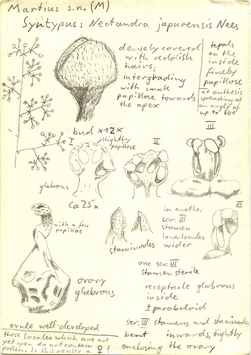 Martius s.n. (M)
Syntypus: Nectandra japurensis Nees
densely covered
with reddish
hairs,
intergrading
with small
papillae towards
the apex
tepals
on the
inside
finely
papillose
at anthesis
spreading at
an angle of
up to 60°
bud ±12x
I
slightly
papillose
II
III
glabrous
Ca 25x
with a few
papillae
staminodes
in another
ser. III
stamen
lower locules
wider
VI
one ser. III
stamen sterile
ovary
glabrous
receptacle glabrous
inside
± paraboloid
ovule well-developed
ser. III stamens and staminodes
bent inwards, tightly
enclosing the ovary
those locules which are not
yet open do not contain
pollen. Is this really a ♀?